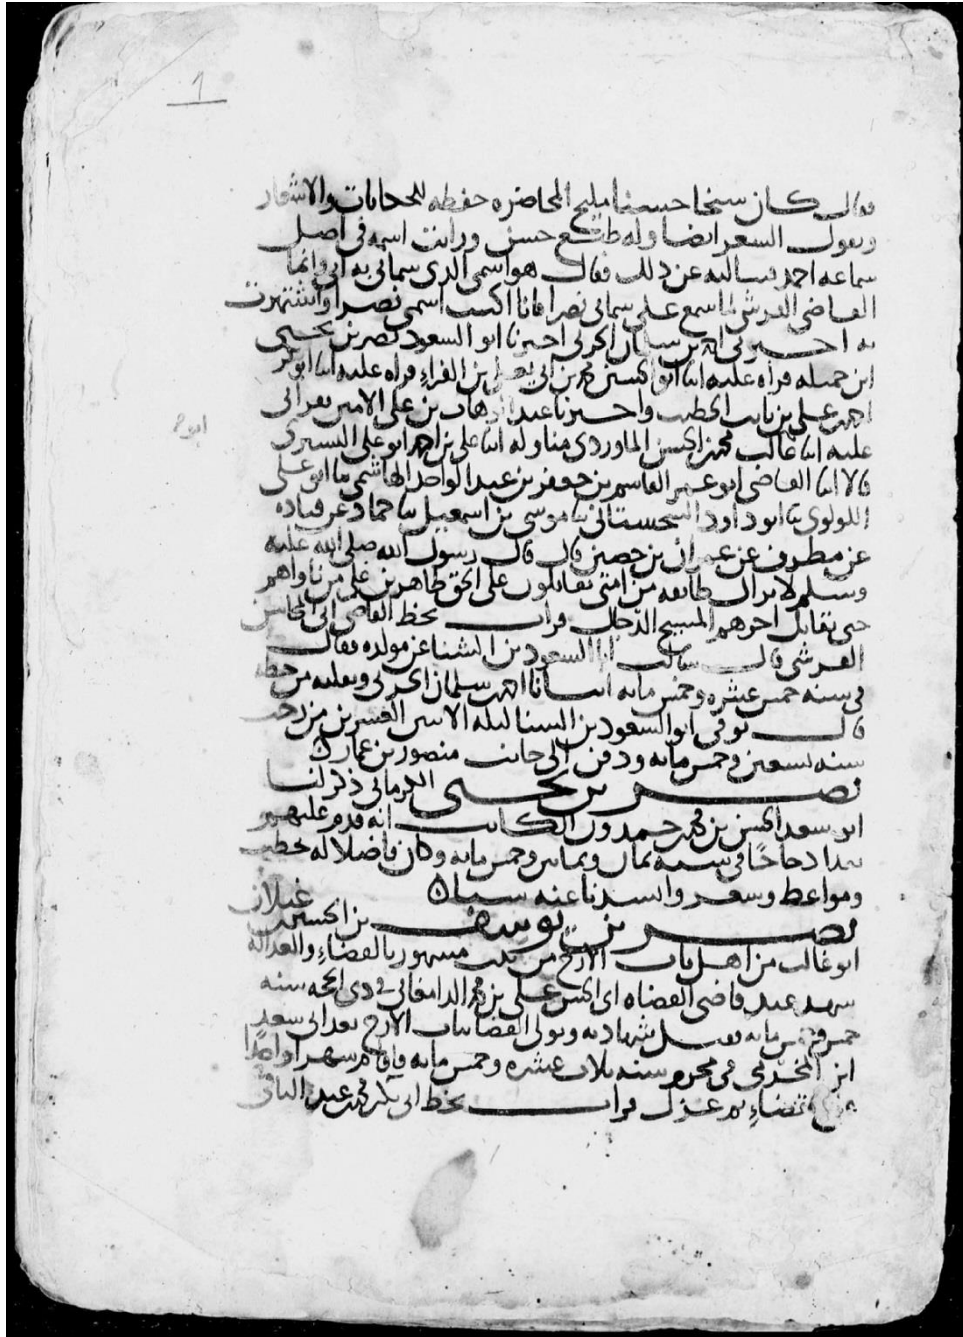 1
فقال كان شيخا حسنا مليح المحاضرة حفظه للحكايات والاشعار
ويقول الشعر ايضا وله طبع حسن ورايت اسمه في اصل
سماعه احمد فسالته عن ذلك فقال هو اسمي الذي سماني به ابي وانما
القاضي القرشي لما سمع علي سماني نصرا فانا اكتب اسمي نصرا واشتهرت
به اخبرني احمد بن سلمان الحربي اخبرنا ابو السعود نصر بن يحيى
ابن جميله قراه عليه انبا ابو الحسين محمد بن ابي يعلى بن الفراء قراه عليه انبا ابو بكر
احمد بن علي بن ثابت الخطيب واخبرنا عبد الوهاب بن علي الامين بقراتي
عليه انبا غالب محمد بن الحسن الماوردي مناوله انبا علي بن احمد ابو علي التستري
قالا انبا القاضي ابو عمر القاسم بن جعفر بن عبد الواحد الهاشمي نا ابو علي
اللولوي نا ابو داود السجستاني نا موسى بن اسمعيل نا حماد عن قتاده
عن مطرف عن عمران بن حصين قال قال رسول الله صلى الله عليه
وسلم لا تزال طائفه من امتي يقاتلون على الحق ظاهرين على من ناواهم
حتى يقاتل اخرهم المسيح الدجال قرات بخط القاضي ابي المحاسن
القرشي قال سالت ابا السعود بن الشنا عن مولده فقال
في سنه خمس عشره وخمس مايه انبانا احمد بن سلمان الحربي ونقلته من خطه
قال توفي ابو السعود بن الشنا ليله الاثنين العشرين من رجب
سنه تسعين وخمس مايه ودفن الى جانب منصور بن عمار
نصر بن يحيى الكرماني ذكر لنا
ابو سعد الحسن بن محمد بن حمدون الكاتب انه قدم عليهم
بغداد حاجا في سنه ثمان وثمانين وخمس مايه وكان فاضلا له خطب
ومواعظ وشعر وانشدنا عنه
نصر بن يوسف بن الحسين غيلان
ابو غالب من اهل باب الازج من بيت مشهور بالقضاء والعداله
شهد عند قاضي القضاه ابي الحسن علي بن محمد الدامغاني في ذي الحجه سنه
خمس وخمس مايه فقبل شهادته وتولى القضا بباب الازج بعد ابي سعد
ابن المخرمي في محرم سنه ثلاث عشره وخمس مايه فاقام شهرا واحدا
قضاء ثم عزل قرات بخط ابي بكر محمد بن عبد الباقي